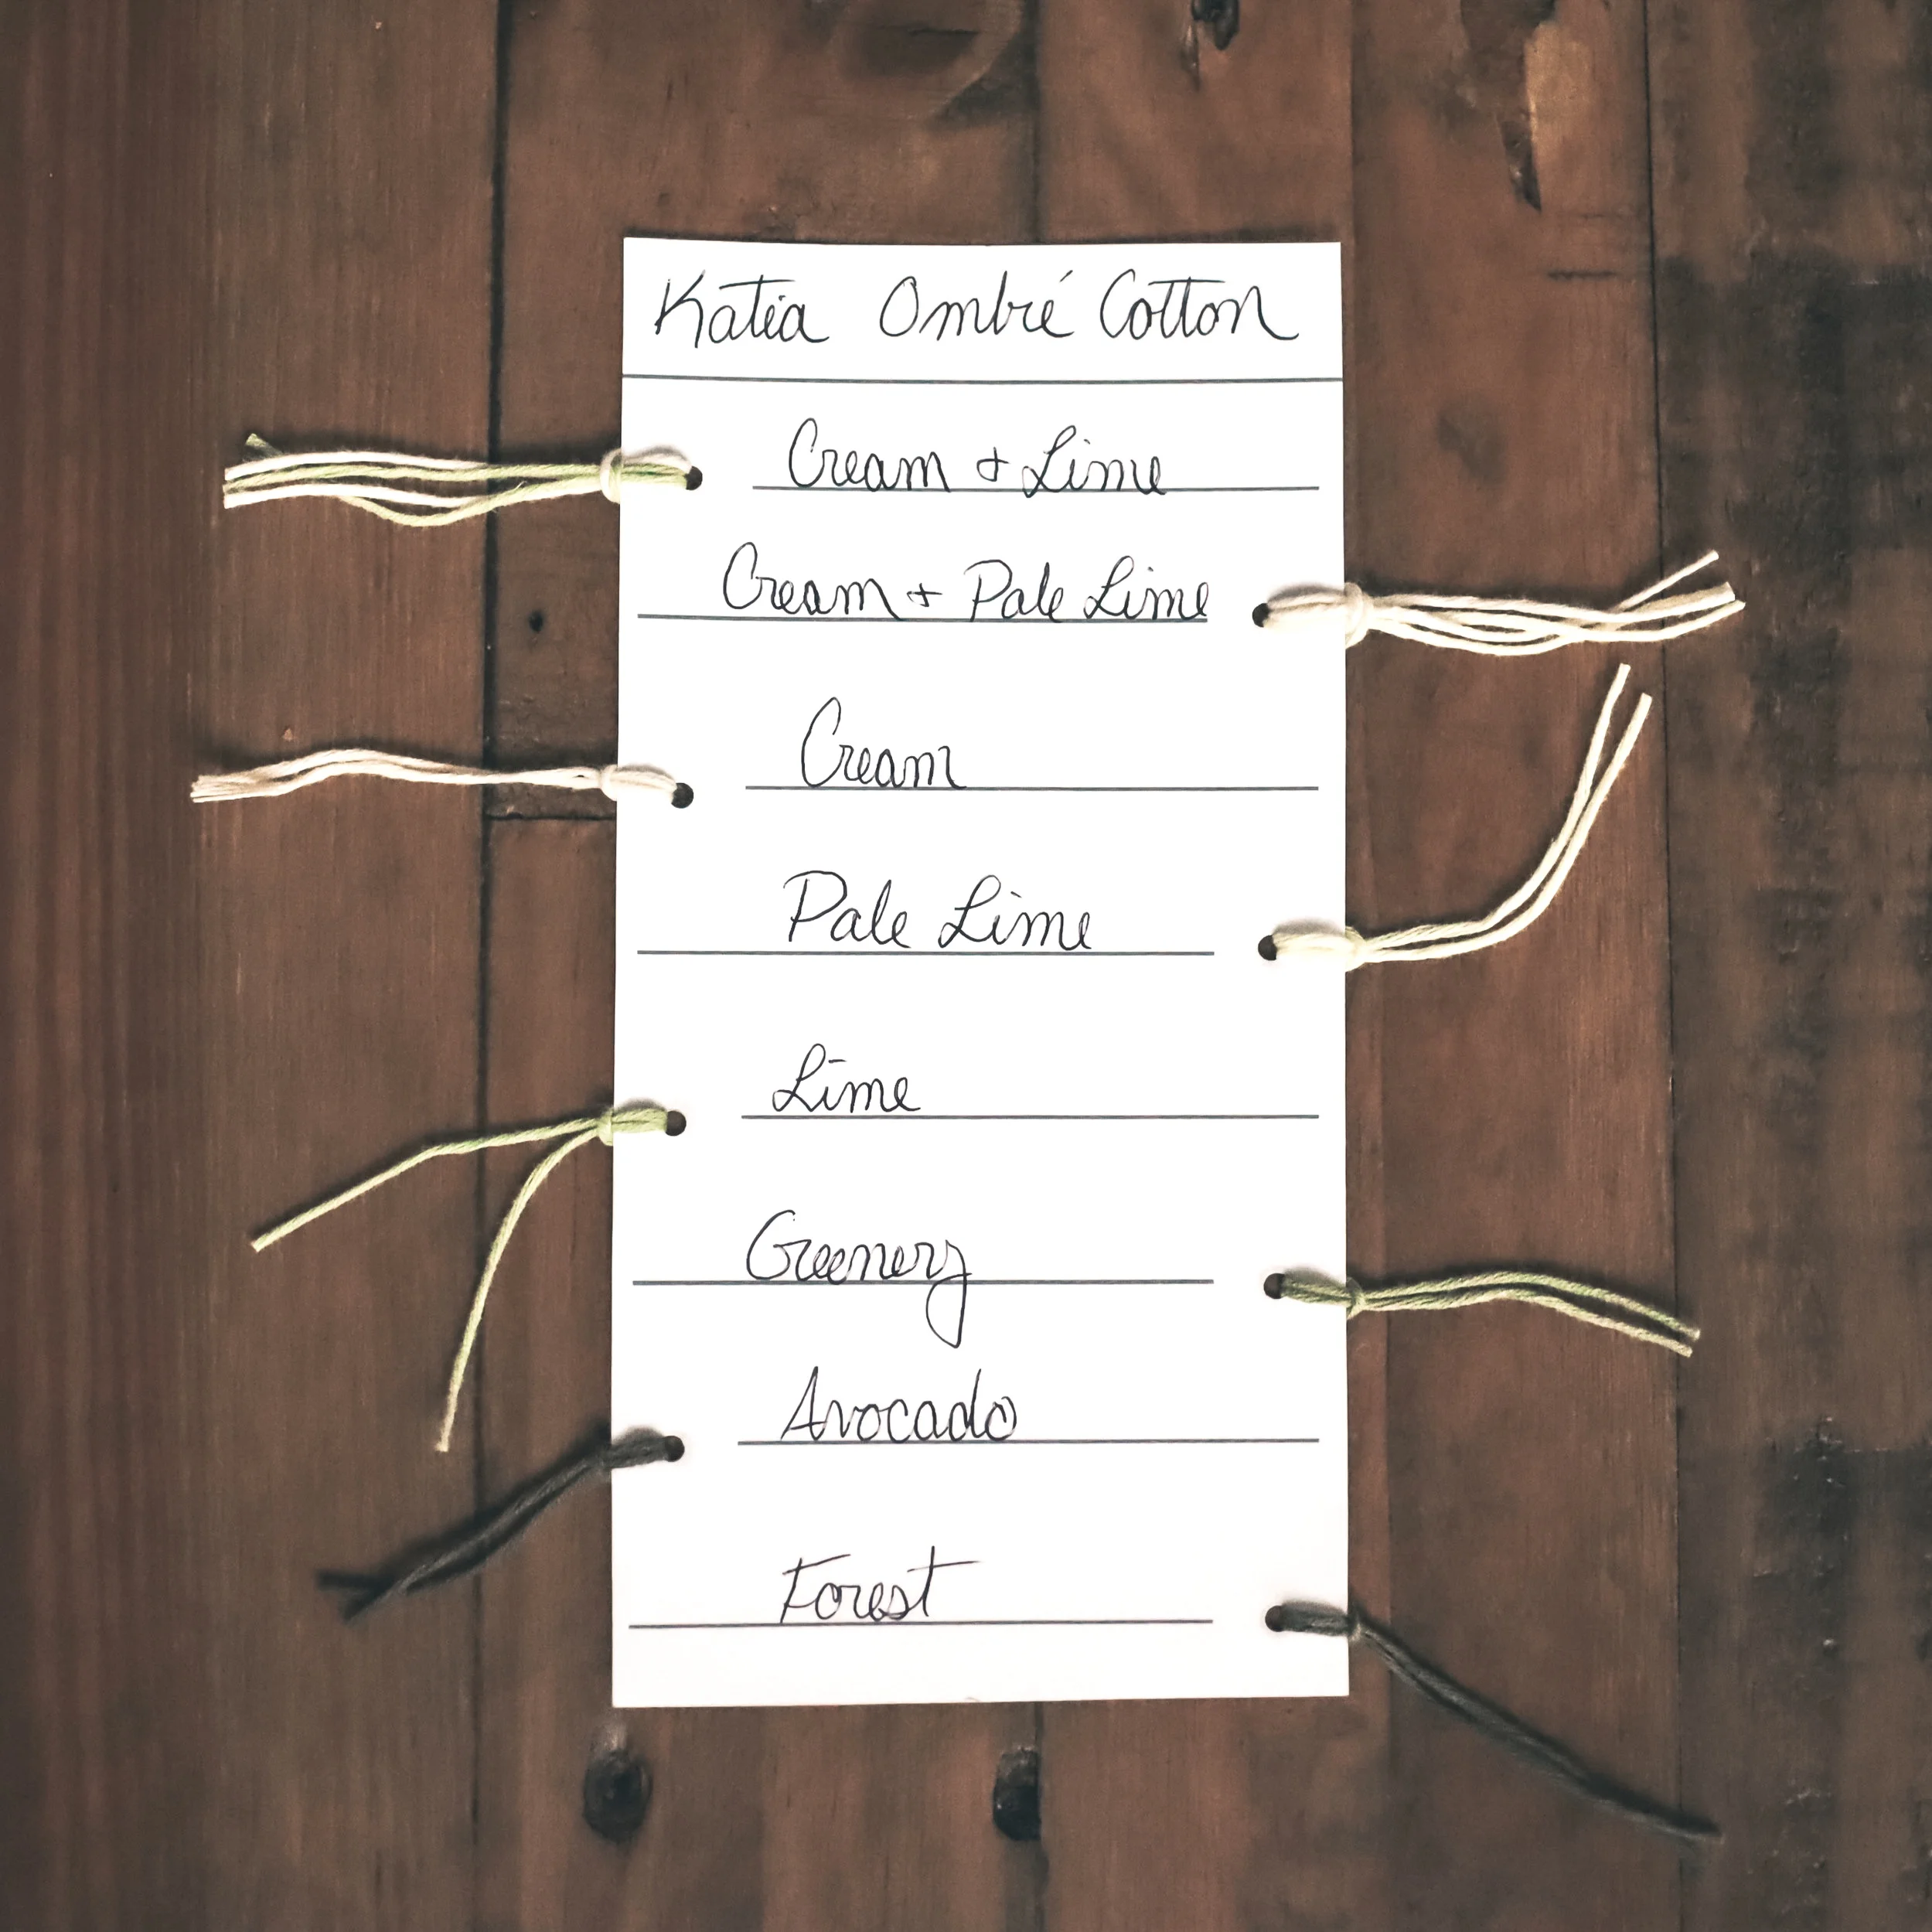 Katia Ombré Cotton
Cream + Lime
Cream + Pale Lime
Cream
Pale Lime
Lime
Greenery
Avocado
Forest